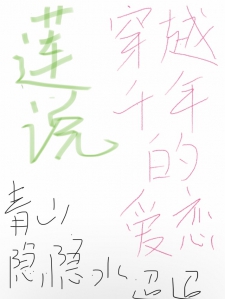 莲说
穿越
千年
的
爱恋
青山
隐隐水迢迢